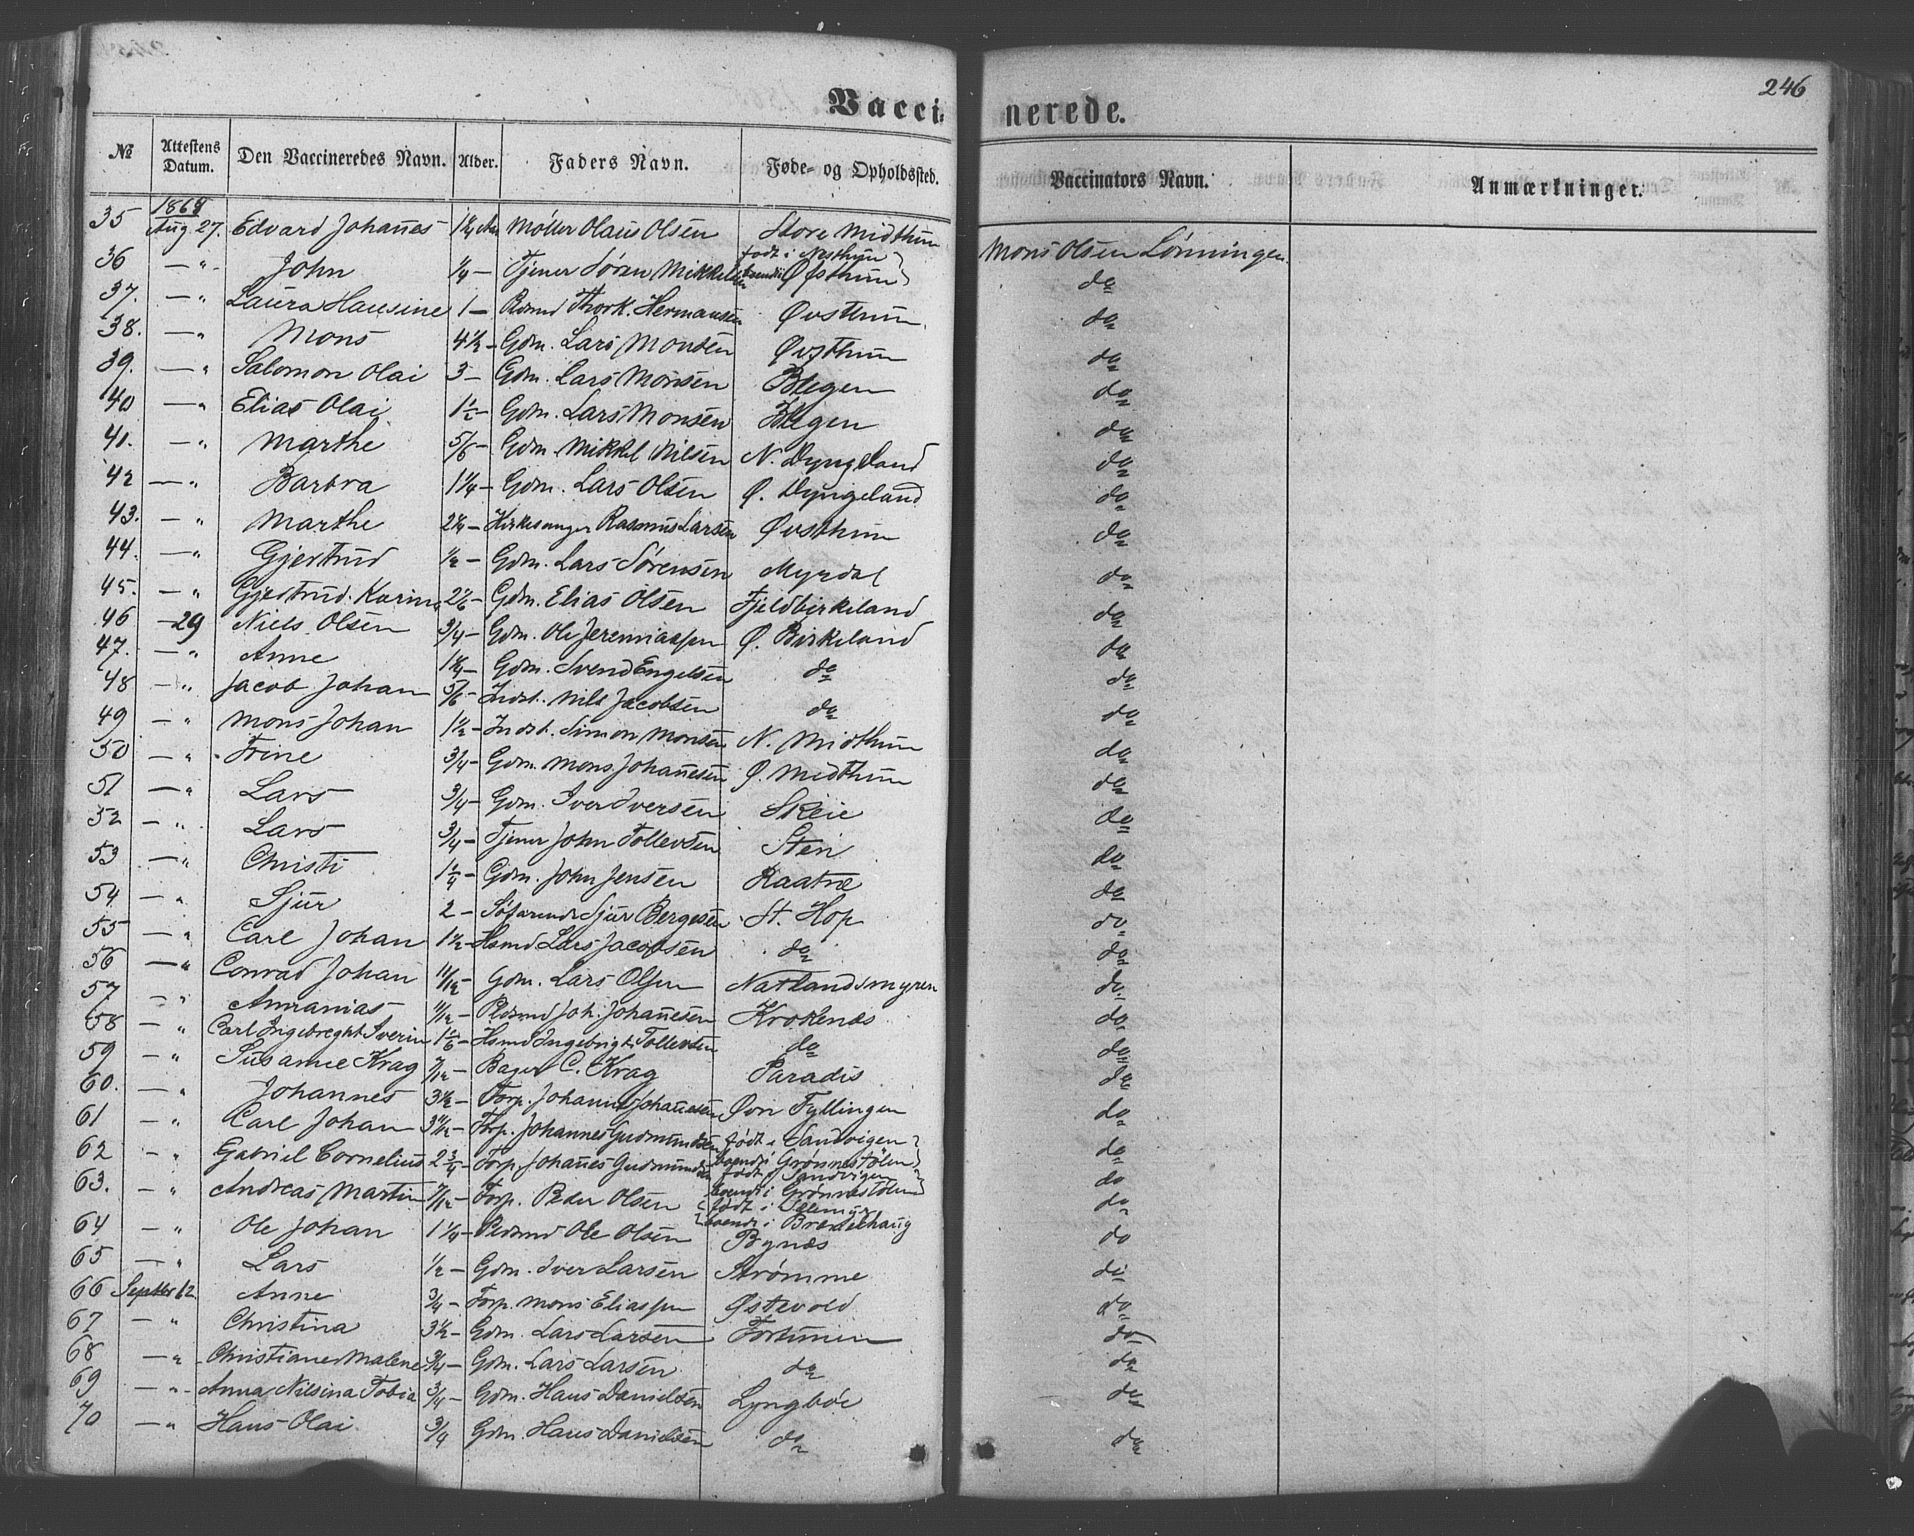 246
Vacci-nerede.
№ Attestens Datum. Den Vaccineredes Navn. Alder. Faders Navn. Føde- og Opholdssted. Vaccinators Navn. Anmærkninger.
35 1868 Aug 27. Edvard Johannes 1¼ Aar Møller Olaus Olsen Store Midthun Mons Olsen Lønningen
36 — " John ¼ — Tjener Søren Mikkelsen født i Nesthun boende i Øvsthun do
37. — " Laura Hansine 1 — Pldsmd Thork. Hermansen Øvsthun do
38. — " Mons 4½ — Gdm. Lars Monsen Øvsthun do
39. — " Salomon Olai 3 — Gdm. Lars Monsen Bøgen do
40 — " Elias Olai 1½ — Gdm. Lars Monsen Bøgen do
41. — " Marthe 5/6 — Gdm. Mikkel Nilsen N. Dyngeland do
42 — " Barbra 1¼ — Gdm. Lars Olsen Ø. Dyngeland do
43. — " Marthe 2¼ — Kirkesanger Rasmus Larsen Øvsthun do
44. — " Gjertrud ½ — Gdm. Lars Sørensen Myrdal do
45. — " Gjertrud Karine 2 1/6 — Gdm. Elias Olsen Fjeldbirkeland do
46 — 29 Niels Olsen ¾ — Gdm. Ole Jeremiassen Ø. Birkeland do
47. — " Anne 1¼ — Gdm. Svend Engelsen do do
48 — " Jacob Johan 5/6 — Indst. Nils Jacobsen do do
49 — " Mons Johan 1½ — Indst. Simon Monsen N. Midthun do
50 — " Trine ¾ — Gdm. Mons Johannesen Ø. Midthun do
51 — " Lars ¾ — Gdm. Iver Iversen Skeie do
52 — " Lars ¾ — Tjener John Tollevsen Sten do
53 — " Christi 1¼ — Gdm. John Jensen Raatræ do
54. — " Sjur 2 — Søfarende Sjur Bergesen St. Hop do
55 — " Carl Johan 1½ — Hsmd Lars Jacobsen do do
56 — " Conrad Johan 11/12 — Gdm. Lars Olsen Natlandsmyren do
57 — " Annanias 11/12 — Pldsmd Joh. Johannesen Krokenæs do
58 — " Carl Ingebreght Sverin 1 1/6 — Hsmd Ingebrigt Tollevsen do do
59 — " Susanne Krag 7/12 — Bager C. Krag Paradis do
60. — " Johannes 3½ — Forp. Johannes Johannesen Øvr Fyllingen do
61 — " Carl Johan 3 11/12 — Forp. Johannes Gudmundsen født i Sandvigen boende i Grønnestølen do
62 — " Gabriel Cornelius 2¾ — Forp. Johannes Gudmundsen født i Sandvigen boende i Grønnestølen do
63. — " Andreas Martin 7/12 — Forp. Peder Olsen født i boende i Brædehaug do
64 — " Ole Johan 1¼ — Pldsmd Ole Olsen Bynæs do
65 — " Lars ½ — Gdm. Iver Larsen Strømme do
66 Septbr 12 Anne ¾ — Forp. Mons Eliassen Østevold do
67 — " Christina 3½ — Gdm. Lars Larsen Fortunen do
68 — " Christiane Malene ¾ — Gdm. Lars Larsen do do
69 — " Anna Nilsina Tobia ¾ — Gdm. Hans Danielsen Lyngbøe do
70 — " Hans Olai ¾ Gdm. Hans Danielsen do do